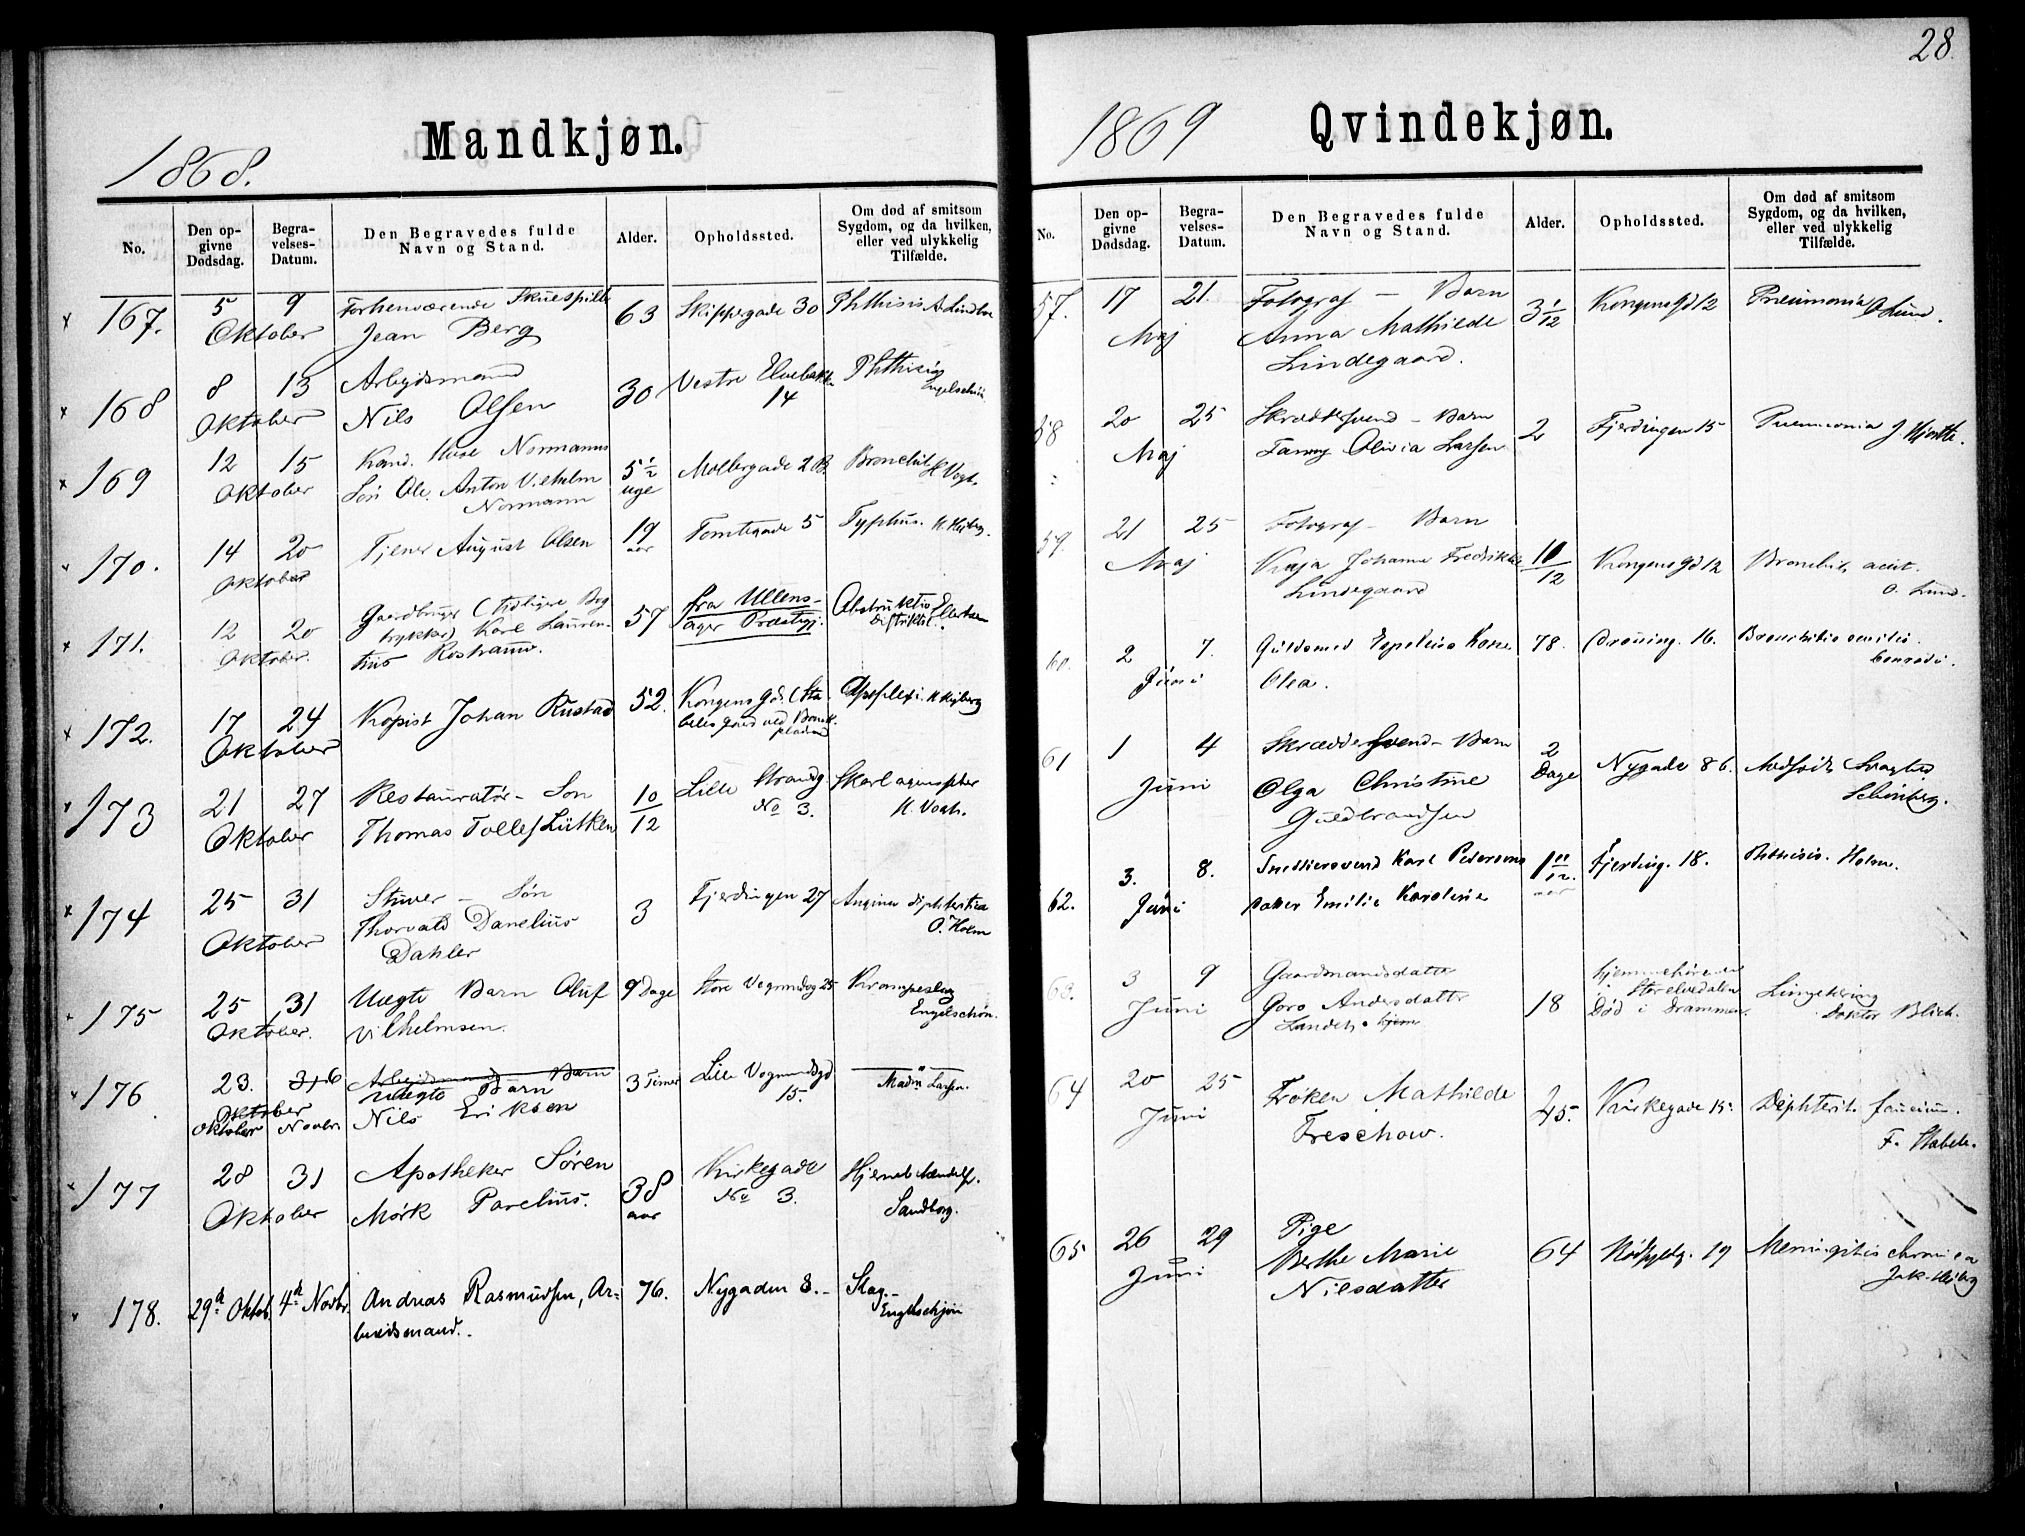 28.
1868.
Mandkjøn.
No.
Den opgivne Dødsdag.
Begravelses-Datum.
Den Begravedes fulde Navn og Stand.
Alder.
Opholdssted.
Om død af smitsom Sygdom, og da hvilken, eller ved ulykkelig Tilfælde.
167. 5 9 Forhenværende Skuespill 63 Skippergade 30 Phthisis
Oktober Jean Berg
168 8 13 Arbejdsmand 30 Vestre Elvebakke Phthisis
Oktober Nils Olsen 14
169 12 15 Kand. Normanns 5 1/2 Møllergade 2 B. Bronchit H. Vogt.
Oktober Søn Ole Anton Vilhelm uge
Normann
170. 14 20 Tjener August Olsen 19 Tomtegade 5 Typhus.
Oktober aar
171. 12 20 Gaardbruger (tidligere Bog 57 fra Ullens-
Oktober. trykker) Karl Lauren- ager Præstgj.
tius
172. 17 24 Kopist Johan Rustad 52. Kongens Gd. Apoplexi.
Oktober
173 21 27 Restauratør- Søn 10 Lille Strandg
Oktober Thomas Tollef Lütken 12 No 3. H. Vogt.
174 25 31 Stuver - Søn 3 Fjerdingen 27 Angina diphteritica
Oktober Thorvald Danelius O. Holm
Dahler
175 25 31 Uægte Barn Oluf 9 Dage Store Vognmdsg 25 Krampeslag
Oktober. Vilhelmsen. Engelschøn.
176 23. 316 Arbejdsmand Barn 3 Timer Lille Vognmdsgd
Oktober Uægte Barn 15. Madm Larsen.
Oktober Novbr Nils Eriksen
177 28 31 Apotheker Søren 38 Kirkegade
Oktober Mørk Parelius. aar No 3. Sandborg.
178. 29d Oktob. 4d Novbr. Andreas Rasmussen, Ar- 76. Nygaden 8.- Slag.-
beidsmand. Engelschjøn
1869
Qvindekjøn.
No.
Den opgivne Dødsdag.
Begravelses-Datum.
Den Begravedes fulde Navn og Stand.
Alder.
Opholdssted.
Om død af smitsom Sygdom, og da hvilken, eller ved ulykkelig Tilfælde.
57. 17 21. Fotograf - Barn 3 1/12 Kongens Gd 12 Pneumonia O Lund.
Maj Anna Mathilde
Lindegaard.
58 20 25 Skræddersvend - Barn 2 Fjerdingen 15 Pneumonia
Maj Fanny Olivia Larsen
59 21 25 Fotograf - Barn 10 Kongens Gd 12 Bronchit. acut.
Maj Kaja Johanne Fredrikke 12 O. Lund.
Lindegaard
60. 2 7. Guldsmed Kone 78. Dronning. 16. Bronchitis senilis.
Juni Olea. Conradi.
61 1 4 Skræddersvend - Barn 2 Nygade 86. Medfødt Svaghed
Juni Olga Christine Dage Schønberg.
Guldbrandsen
62. 3. 8. Snedkersvend Karl Petersens 1 11/12. Fjerding. 18. Phthisis. Holm.
Juni Datter Emilie Karoline aar
63. 3 9 Gaardmandsdatter 18 hjemmehørende
Juni Goro Andersdatter Storelvedalen
Død i Drammen Doktor Blich.
64 20 25 Frøken Mathilde 45. Kirkegade 15. Diphterit. faucium.
Juni Treschow. F. Stabel.
65 26 29 Pige 64 Rødfyldg. 19 Meningitis chronica
Juni Berthe Marie
Nilsdatter